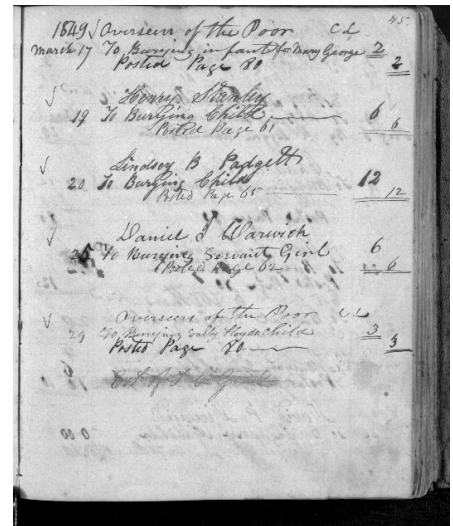 45
1849 √ Overseers of the Poor C L
March 17 To Burying infant for Mary George 2
Posted Page 80 2
√ Henry Stanley
19 To Burying Child 6
Posted Page 61 6
√ Lindsey B Padgett
20 To Burying Child 12
Posted Page 65 12
√ Daniel J Warwick
25 To Burying Servant Girl 6
Posted Page 62 6
√ Overseers of the Poor C L
29 To Burying Sally Floyds Child 3
Posted Page 80 3